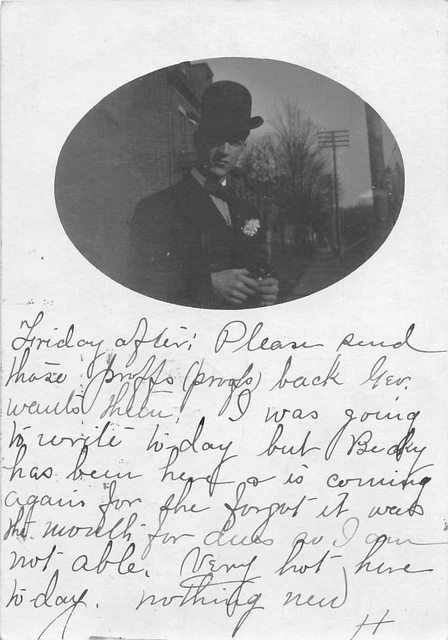 Friday after; Please send
those proffs (proofs) back Geo.
wants them. I was going
to write to-day but Becky
has been here & is coming
again for she forgot it was
the month for dues so I am
not able. Very hot here
to-day. nothing new
H